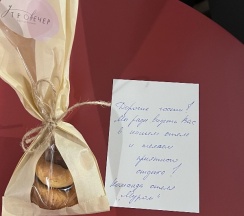 Дорогие гости!
Мы рады видеть Вас
в нашем отеле
и желаем
приятного
отдыха!
Команда отеля